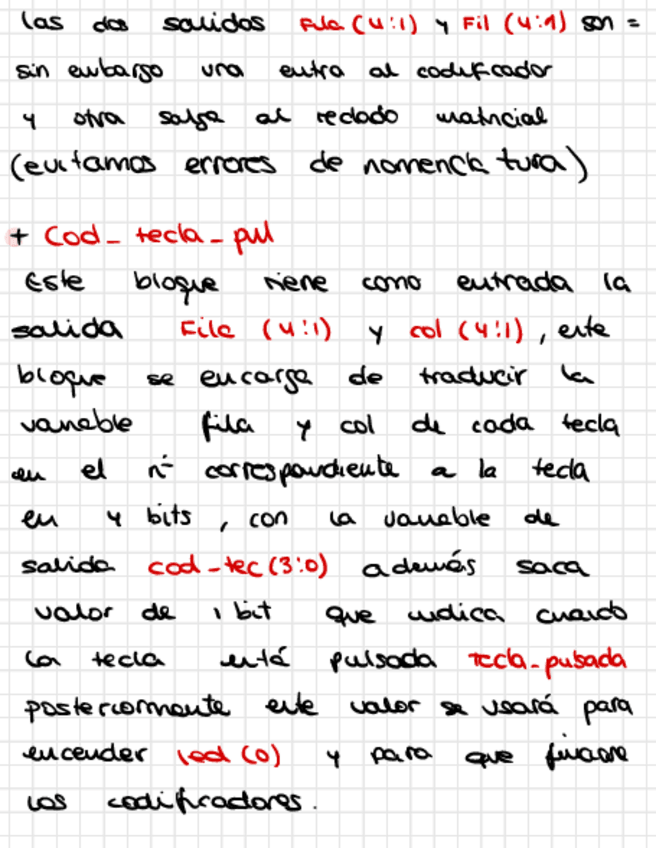 las dos salidas Fila (4:1) y Fil (4:1) son =
sin embargo una entra al codificador
y otra salga al teclado matricial
(evitamos errores de nomencla tura)
+ Cod_ tecla_ pul
Este bloque tiene como entrada la
salida File (4:1) y col (4:1), este
bloque se encarga de traducir la
variable fila y col de cada tecla
en el nº correspondiente a la tecla
en 4 bits, con la variable de
salida cod_tec (3:0) además saca
valor de 1 bit que indica cuando
la tecla está pulsada tecla_pulsada
posteriormente este valor se usará para
encender led (0) y para que funcione
los codificadores.